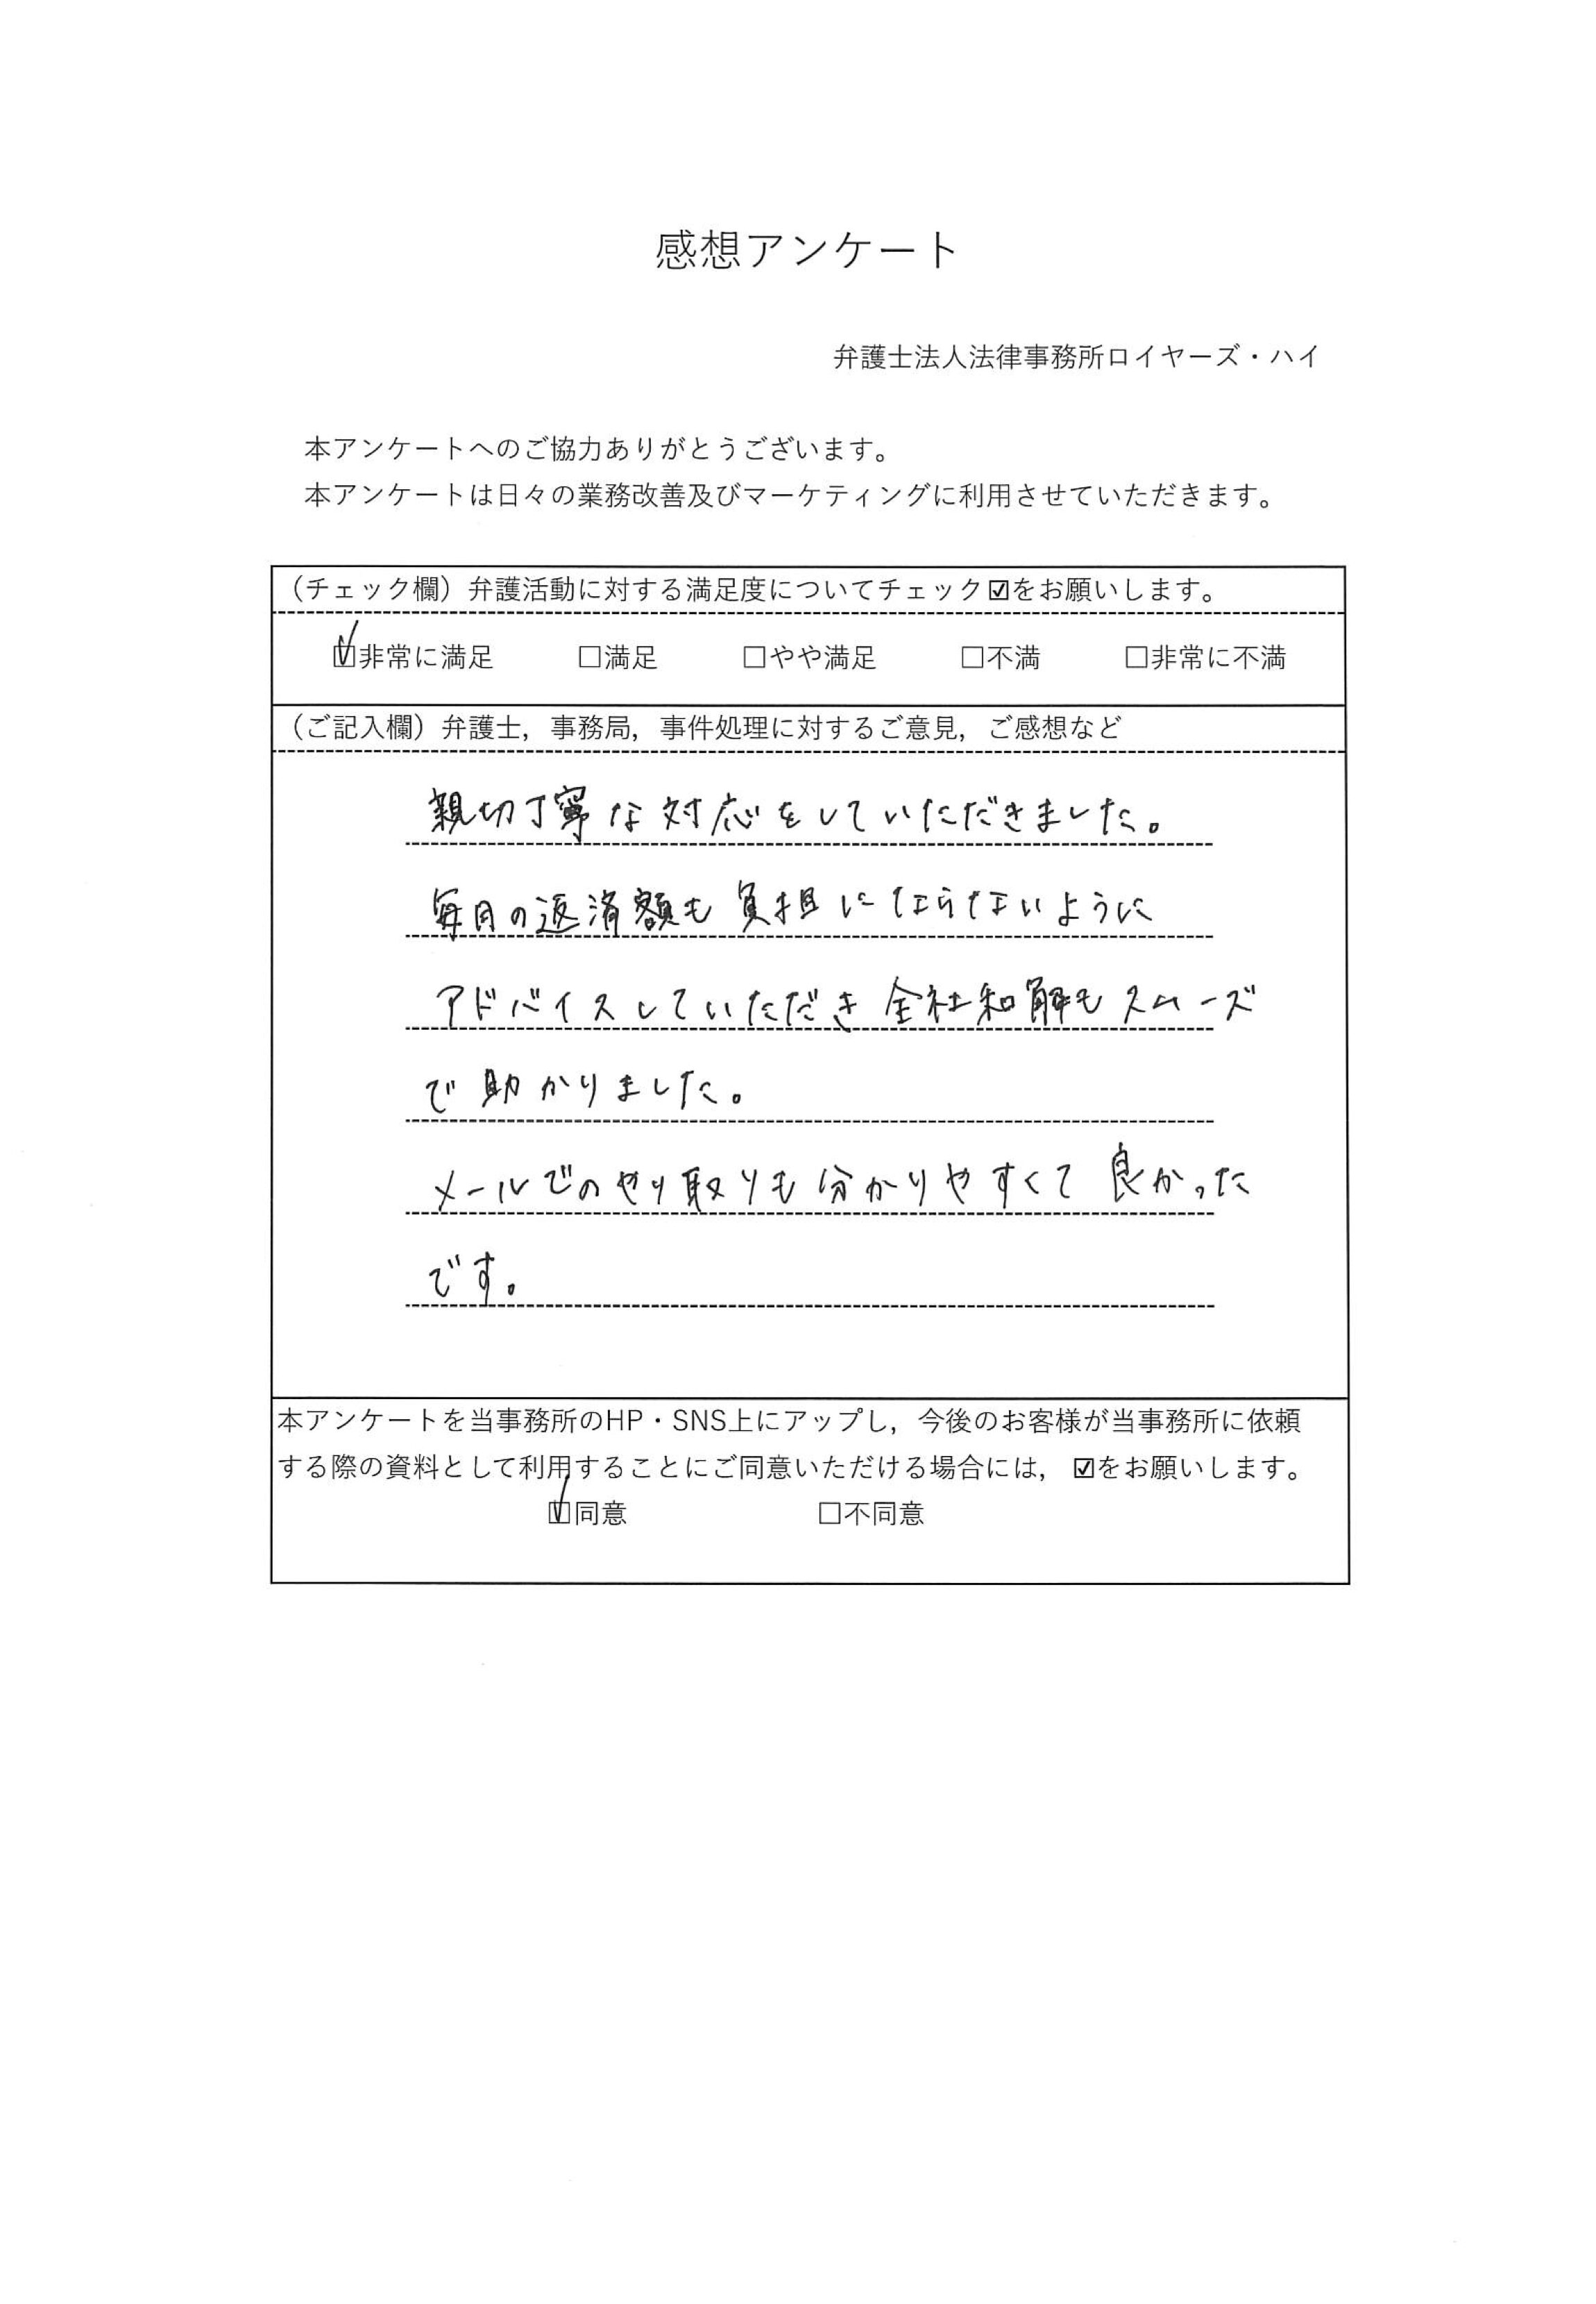 感想アンケート
弁護士法人法律事務所ロイヤーズ・ハイ
本アンケートへのご協力ありがとうございます。
本アンケートは日々の業務改善及びマーケティングに利用させていただきます。
（チェック欄）弁護活動に対する満足度についてチェック☑をお願いします。
☑非常に満足 □満足 □やや満足 □不満 □非常に不満
（ご記入欄）弁護士，事務局，事件処理に対するご意見，ご感想など
親切丁寧な対応をしていただきました。
毎月の返済額も負担にならないように
アドバイスしていただき全社和解もスムーズ
で助かりました。
メールでのやり取りも分かりやすくて良かった
です。
本アンケートを当事務所のHP・SNS上にアップし，今後のお客様が当事務所に依頼
する際の資料として利用することにご同意いただける場合には，☑をお願いします。
☑同意 □不同意